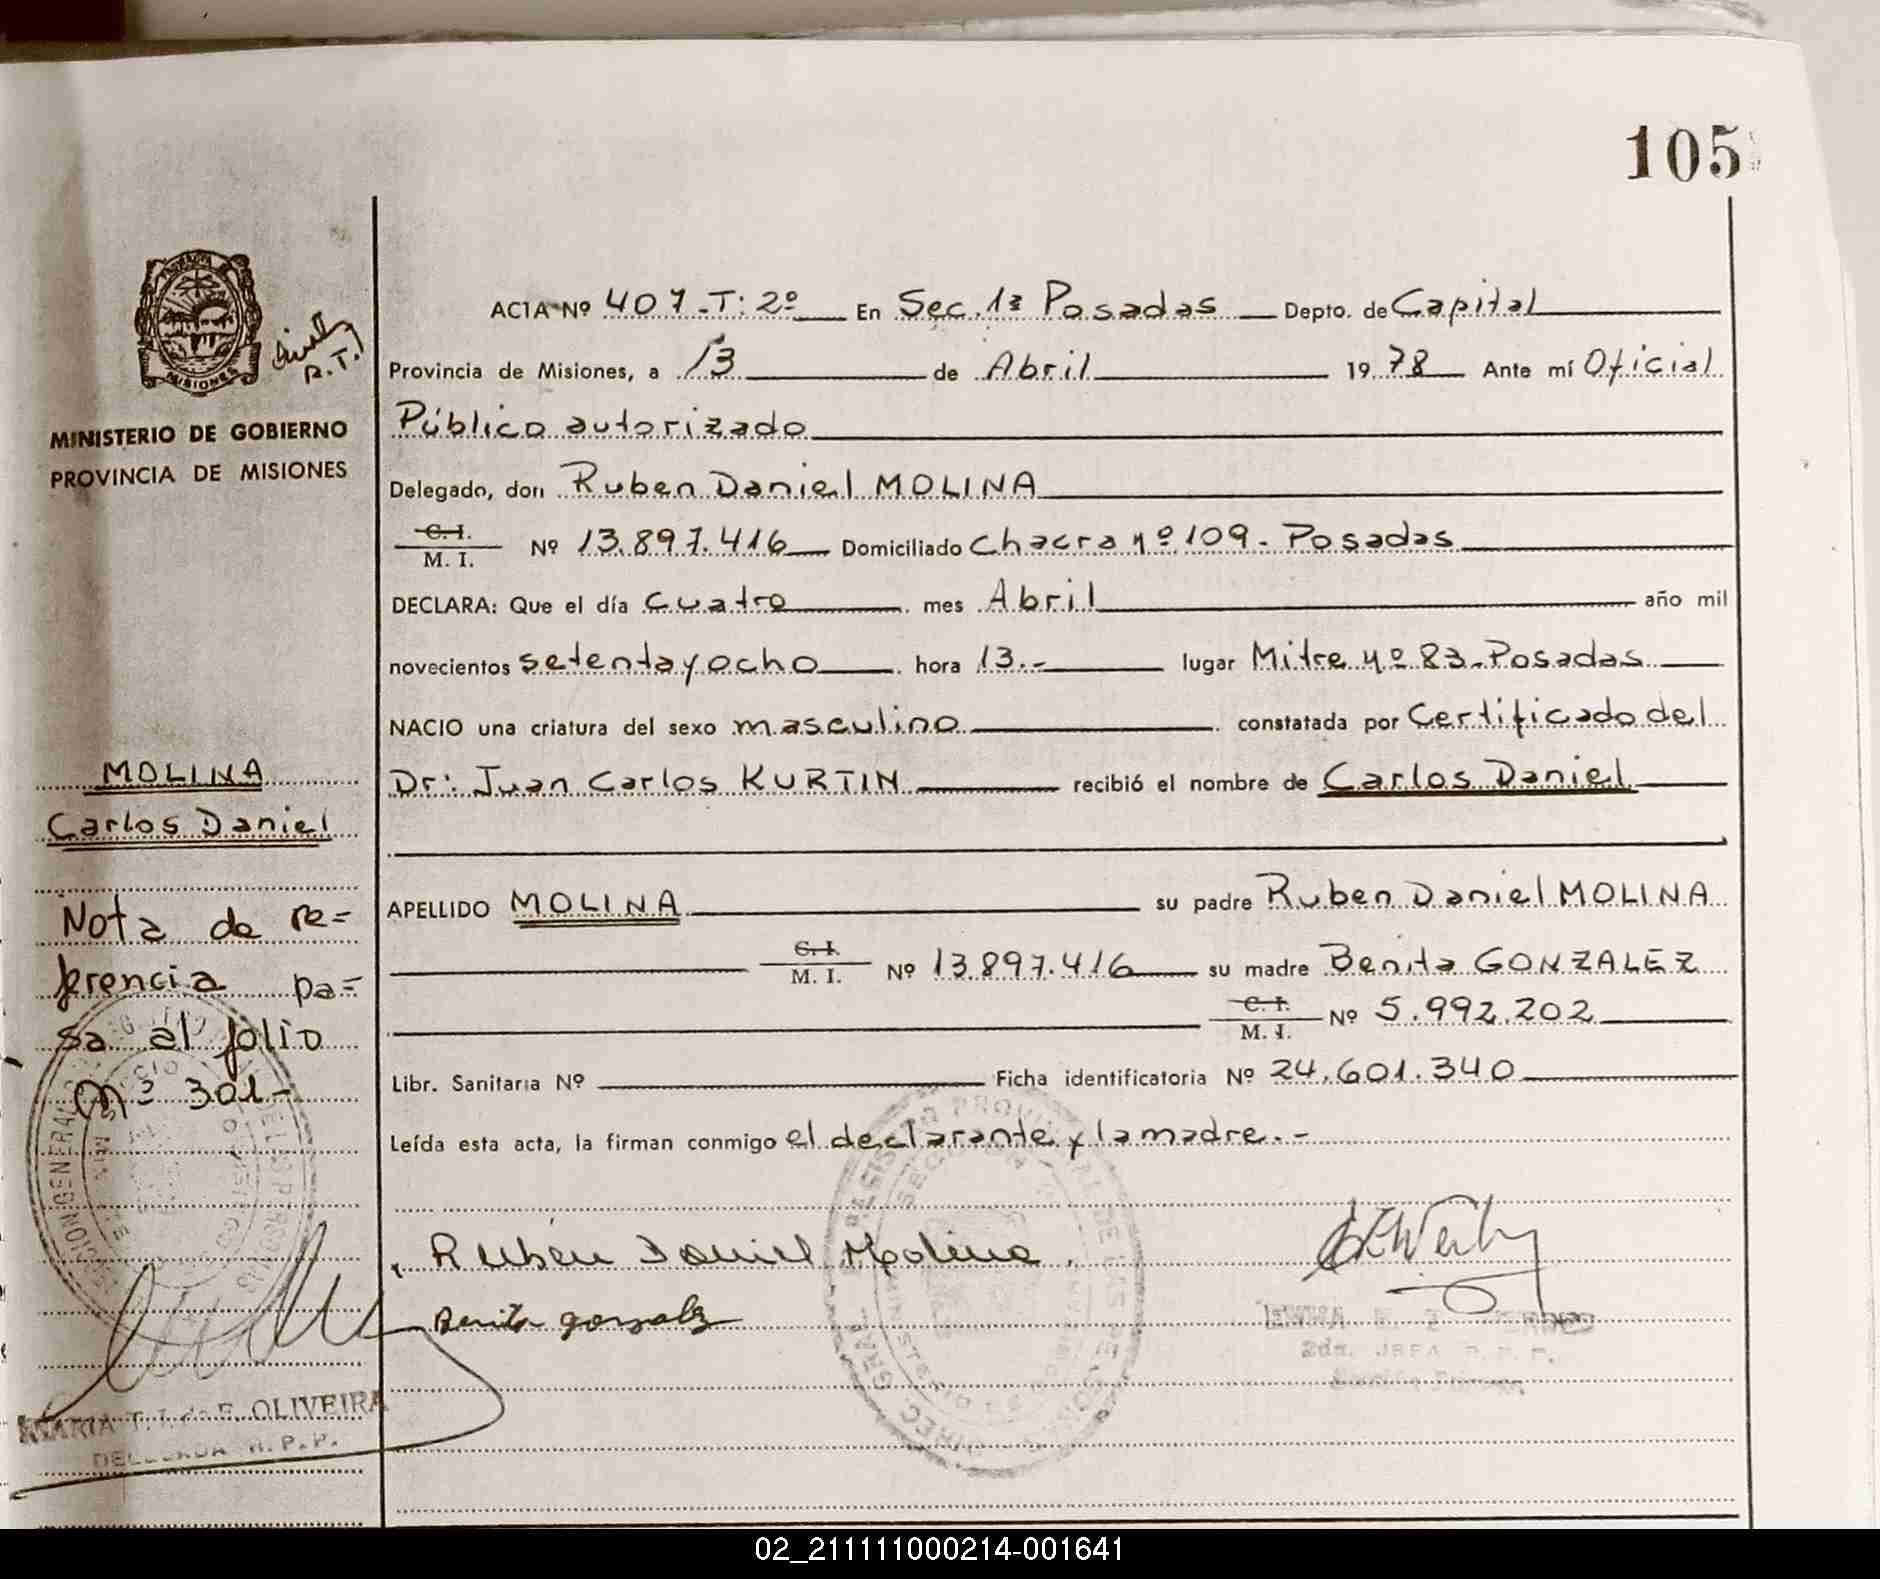 105
ACTA Nº 407.T:2º En Sec.1ª Posadas Depto. de Capital
Provincia de Misiones, a 13 de Abril 1978 Ante mí Oficial
Público autorizado
Delegado, don Ruben Daniel MOLINA
C. I.
M. I.
Nº 13.897.416 Domiciliado Chacra nº 109 - Posadas
DECLARA: Que el día cuatro mes Abril año mil
novecientos setenta y ocho hora 13.- lugar Mitre nº 83-Posadas
NACIO una criatura del sexo masculino constatada por Certificado del
Dr: Juan Carlos KURTIN recibió el nombre de Carlos Daniel
APELLIDO MOLINA su padre Ruben Daniel MOLINA
C. I.
M. I.
Nº 13.897.416 su madre Benita GONZALEZ
C. I.
M. I.
Nº 5.992.202
Libr. Sanitaria Nº Ficha identificatoria Nº 24.601.340
Leída esta acta, la firman conmigo el declarante y la madre.-
Rubén Daniel Molina
Benita gonzalz
2da. JEFA R. P. P.
MISIONES
R.T.
MINISTERIO DE GOBIERNO
PROVINCIA DE MISIONES
MOLINA
Carlos Daniel
Nota de re=
ferencia pa=
sa al folio
nº 301-
MARIA T. OLIVEIRA
DELEGADA R.P.P.
02_211111000214-001641